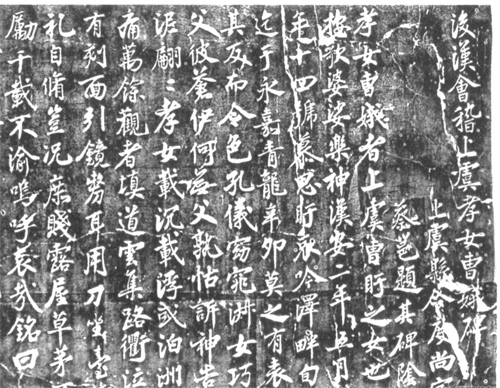 後漢會稽上虞孝女曹娥碑
上虞縣令度尚字
蔡邕題其碑陰
孝女曹娥者上虞曹盱之女也
撫歌婆娑樂神漢安二年五月
年十四號慕思盱哀吟澤畔旬
迄于永嘉青龍辛卯莫之有表
其反而令色孔儀窈窕淑女巧
父彼蒼伊何父孰怙訴神告
泥翩〻孝女載沉載浮或泊洲
痛萬餘觀者填道雲集路衢泣
有刻面引鏡剺耳用刀坐臺
礼自脩豈況庶賤露屋草茅
勵千載不渝嗚呼哀哉銘曰